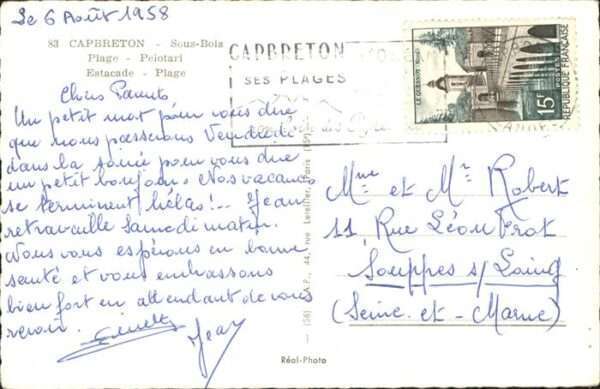 Le 6 Août 1958
83 CAPBRETON - Sous-Bois
Plage - Pelotari
Estacade - Plage
CAPBRETON
SES PLAGES
LE QUESNOY NORD
15F
POSTES
REPUBLIQUE FRANÇAISE
Chers Parents
Un petit mot pour vous dire
que nous passerons Vendredi
dans la soirée pour vous dire
un petit bonjour. Nos vacances
se terminent hélas!... Jean
retravaille Samedi matin.
Nous vous espérons en bonne
santé et vous embrassons
bien fort en attendant de vous
revoir.
Jean
Mme et Mr Robert
11 Rue Léon Frot
Souppes s/ Loing
(Seine-et-Marne)
44, rue Letellier, Paris
Réal-Photo